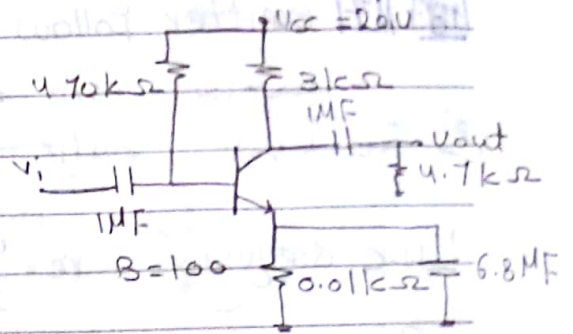 Vcc = 20V
470kΩ
3kΩ
1MF
Vout
Vi
4.7kΩ
1MF
B=100
0.01kΩ
6.8MF